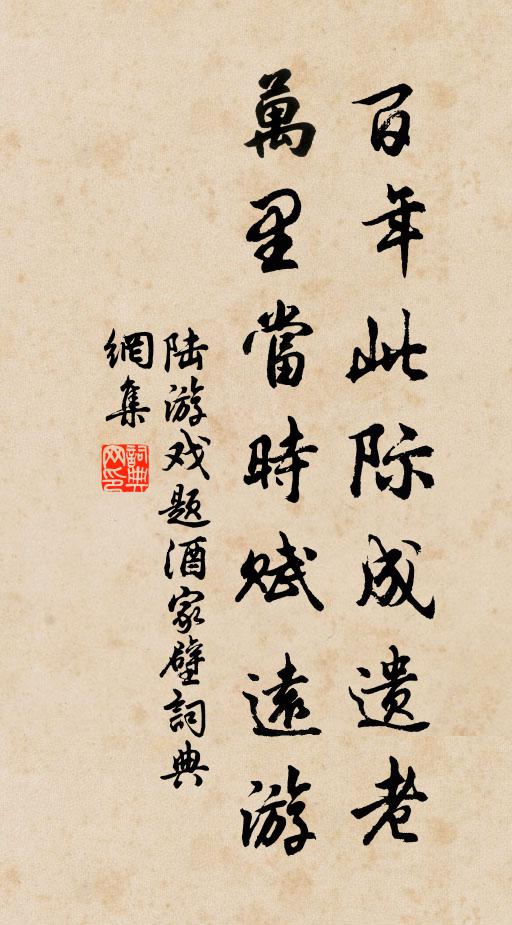 百年此际成遗老
萬里當時赋遠游
陆游戏题酒家壁詞典
網集
詞典网印